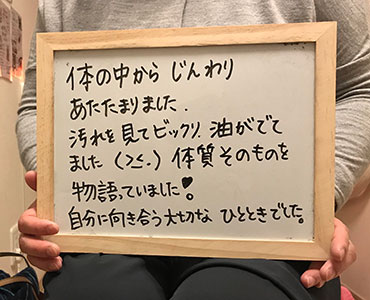 体の中から じんわり
あたたまりました.
汚れを見てビックリ. 油がでて
ました (>≦.) 体質そのものを
物語っていました!
自分に向き合う大切な ひとときでした。